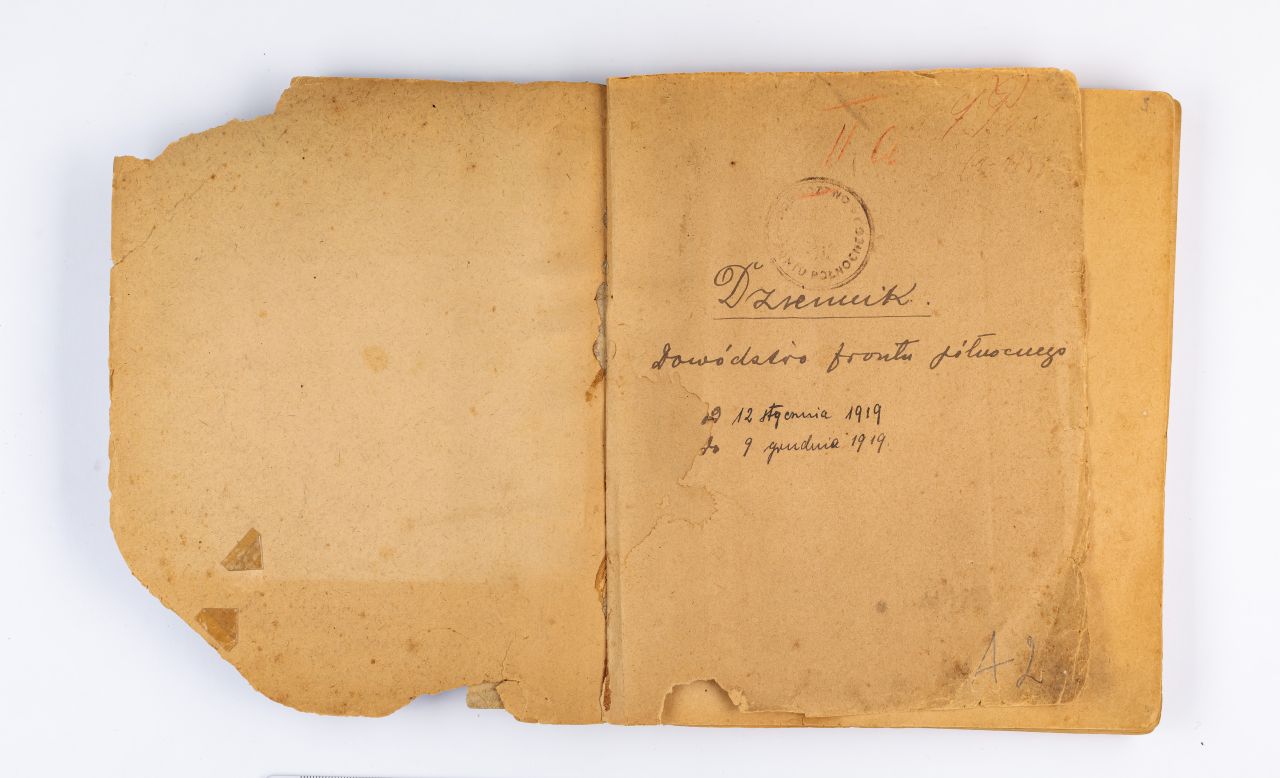 II a
FRONTU PÓŁNOCNEGO
Dziennik.
Dowództwo frontu północnego
od 12 stycznia 1919
do 9 grudnia 1919.
A 2